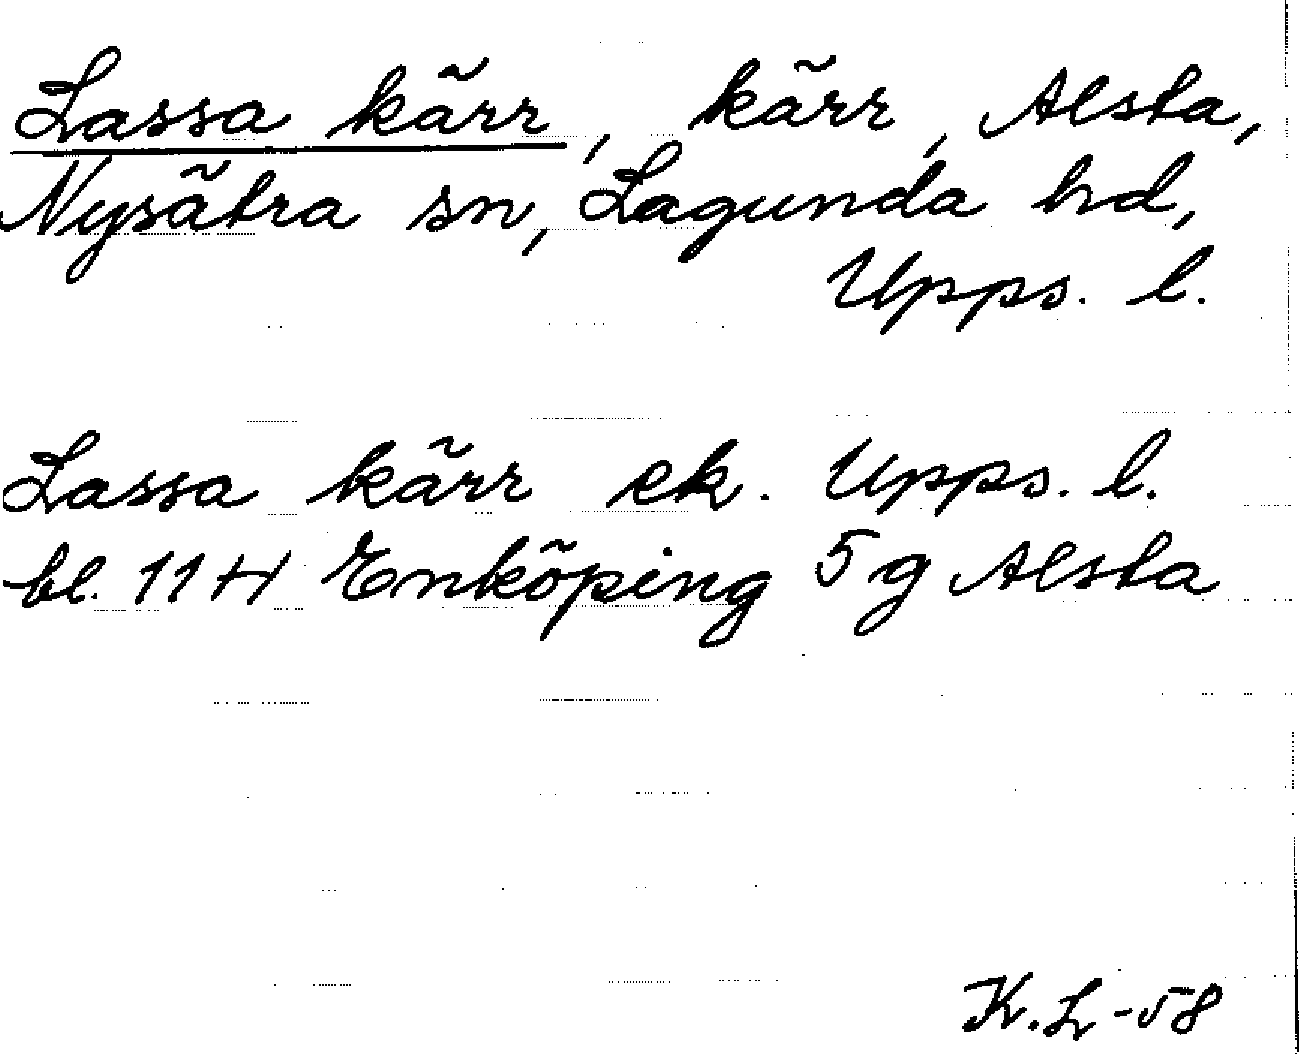 Lassa kärr, kärr, Alsta,
Nysätra sn, Lagunda hd,
Upps. l.
Lassa kärr ek. Upps. l.
bl. 11 H Enköping 5 g Alsta
K. L -58